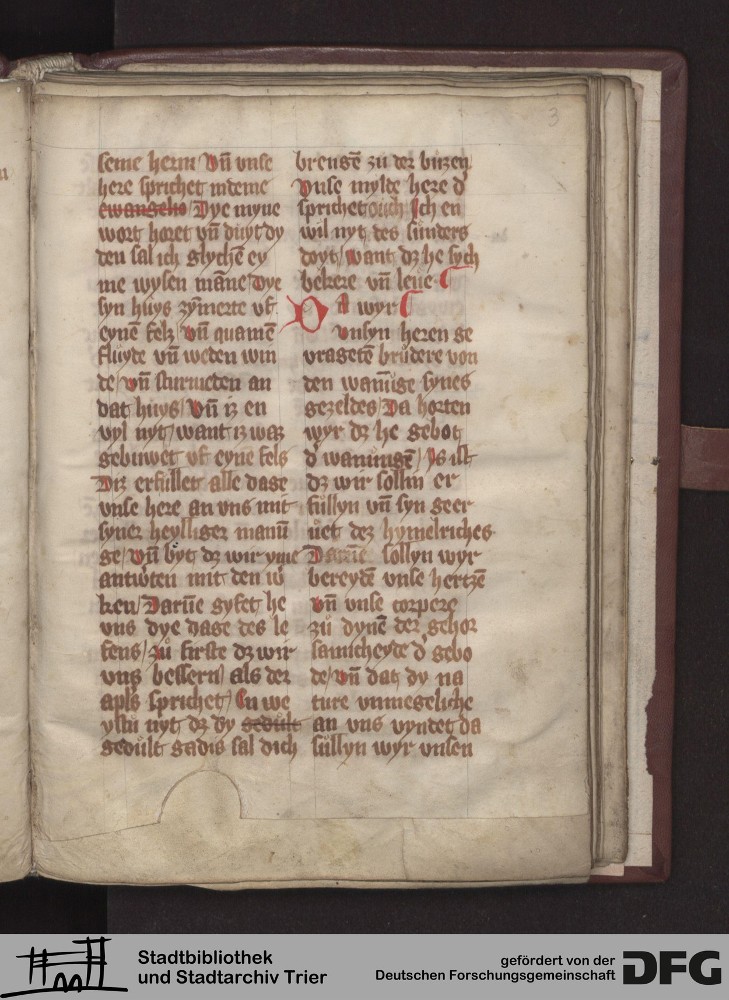 3
seme herin Vñ vnse
here sprichet in deme
ewangelio Dye myne
wort horet vñ duyt dy
den sal ich glychē ey
me wysen māne dye
syn huys zỹmerte vf
eynē felz vñ quamē
fluyde vñ weden win
de vñ sturmeten an
dat huys Vñ iz en
vyl nyt want iz waz
gebuwet vf eyne fels
Diz erfullet alle dage
vnse here an vns mit
syner heylliger manū
ge vñ byt dz wir yme
antwten mit den w
ken Darūe gyfet he
vns dye dage des le
fens zů firste dz wir
vns bessern als der
apls sprichet En we
ystu nyt dz dy gedult
gedůlt gadis sal dich
brengē zu der buzen
Vnse mylde here d
sprichet ouch Ich en
wil nyt des sunders
doyt want dz he sych
bekere vñ leue
Da wyr
vnsyn heren ge
vragetē brudere von
den wanūge synes
gezeldes Da horten
wyr dz he gebot
d wanūngē Is ist
dz wir sollin er
fullyn vñ syn geer
uet dez hymelriches
Darūe sollyn wyr
bereydē vnse hertzē
vñ vnse corpere
zů dynē der gehor
samicheyde d gebo
de vñ dat dy na
ture vnmegeliche
an vns vyndet da
sůllyn wyr vnsen
Stadtbibliothek
und Stadtarchiv Trier
gefördert von der
Deutschen Forschungsgemeinschaft
DFG